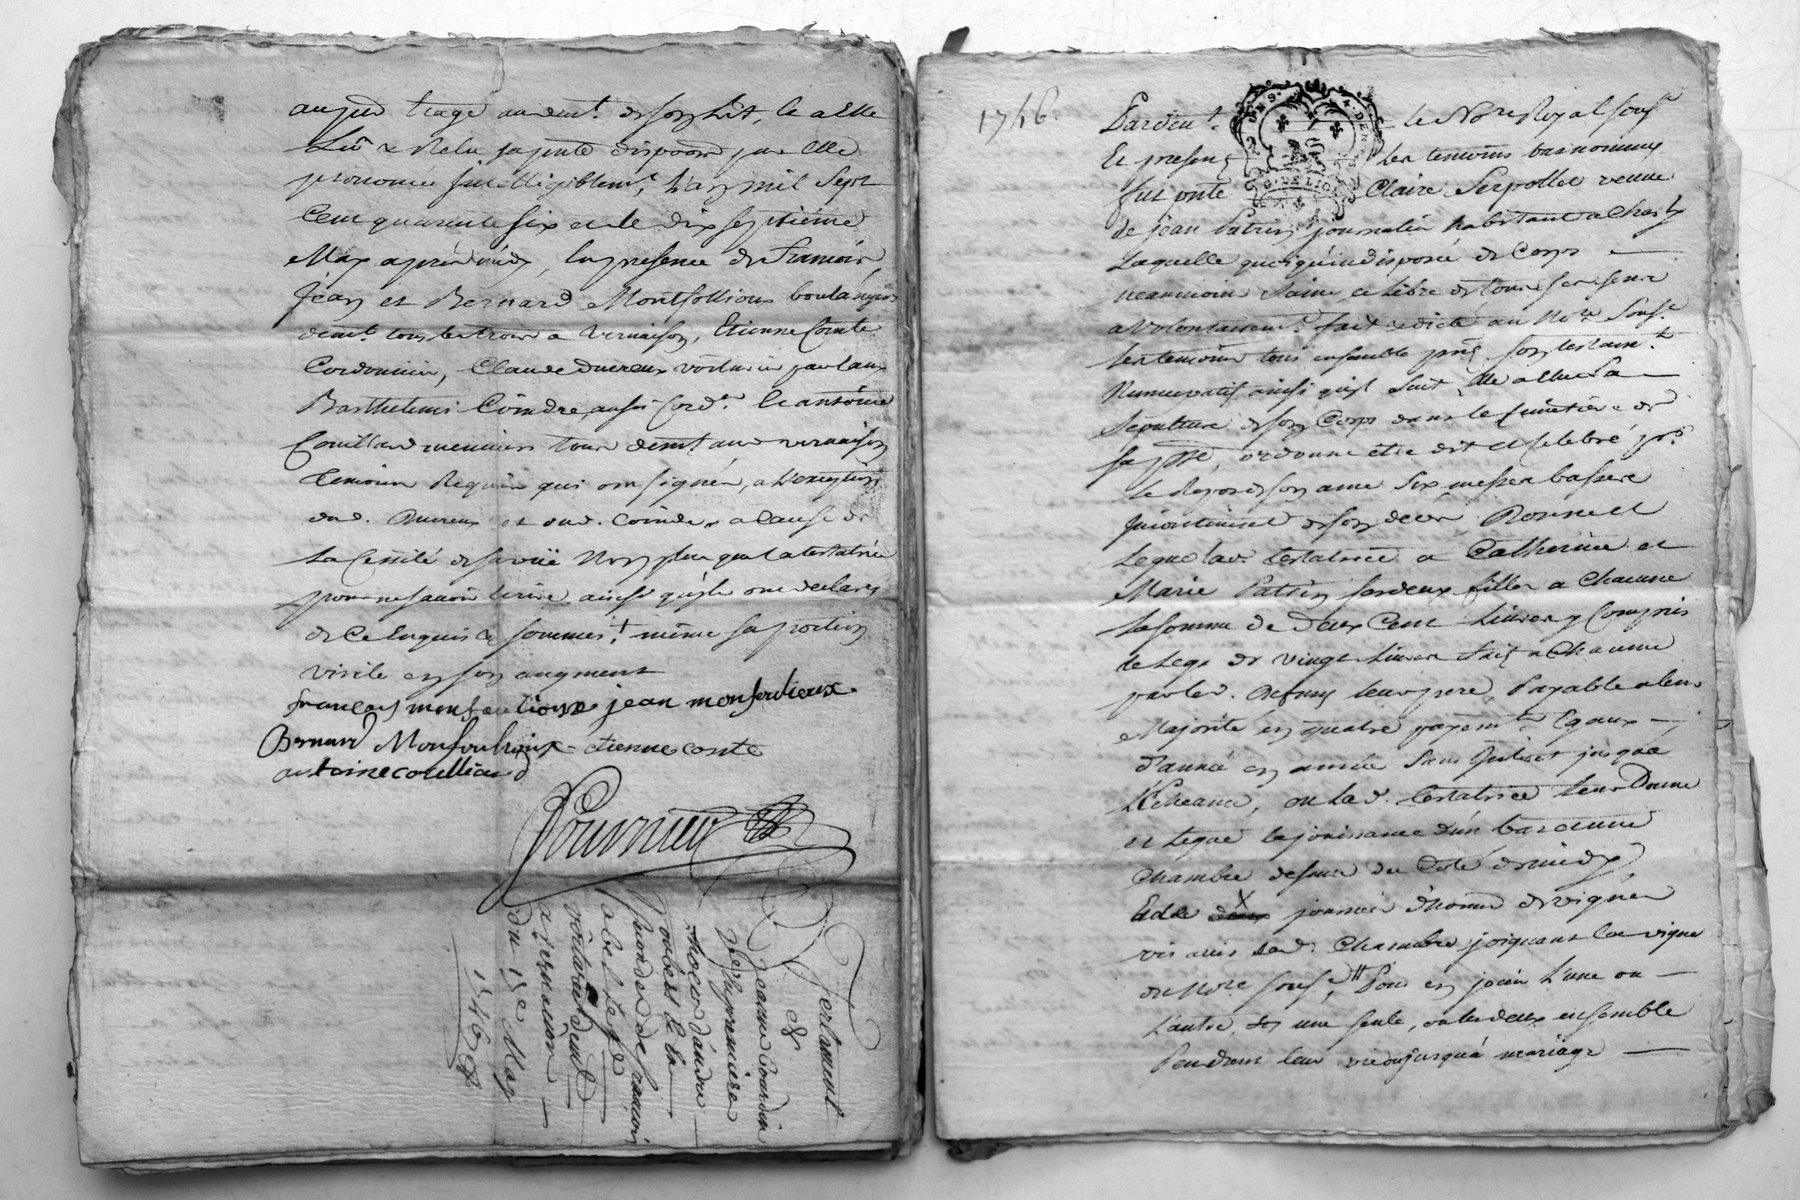 au pied
Lû & Relu disposon par elle
prononcée Intelligiblemt, L'an mil Sept
Cent quarente six et le dix septième
May après midy, En presence de François,
Jean et Bernard Montfollioux boulangers
demt. tous les trois a Vernaison, Etienne Comte
Cordonnier, Claude Ducreux voiturier par eaux
Barthelemi Coindre, aussi Cord.er Et antoine
Couilland meunier tous demt aud vernaison
Temoins Requis qui ont signés, a L'exception
dud. Ducreux et dud. Coindre, a Cause de
La Cessité de sa vüe Non plus que la testatrice
pour ne savoir écrire, ainsi qu'ils ont declarés
de Ce Enquis & sommés, même sa portion
virile en son augment
françois monfoulioux jean monfoulieux
Bernard Monfoulioux etienne conte
antoine couilliand
Fournieu
Testament
de
Jeanne Gourdin
veuve
d'andré
Joubert & En
secondes de françois
abel Lesgé
voiturier demt
a vernaison
du 15e May
1746
1746.
Pardevt. le Nore Royal sousé
Et presens les temoins bas nommés
fut pnte Claire Serpollet veuve
de jean Patrin journalier habitant a Charly
Laquelle quoiqu'indisposée de Corps
neanmoins Saine et Libre de tous ses sens
a volontairemt. fait & dicté au Nore Sousé.
Les temoins tous ensemble pns son testamt.
Nuncupatif ainsi qu'il suit Elle a Elu sa
Sepulture de son Corps dans le simetière de
sa psse, ordonne etre dit et selebré pr.
le Repos de son ame Six messes basses
Incontinent de son decés Donne et
Legue lad. testatrice a Catherine et
Marie Patrin ses deux filles a Chacune
La somme de deux Cent Livres y Compris
le Legs de vingt Livres fait a Chacune
par led. defunt leur pere, Payable a leur
Majorité en quatre payemts Egaux
d'année en année Sans Interet jusqu'a
L'Echeance, ou lad. testatrice leur Donne
et Legue la jouissance d'un bas d'une
Chambre dessus du Coté de midy
Et de deux journées d'homme de vignes
vis avis lad. Chambre, joignant la vigne
du Nore Sousé, Pour en jouir L'une ou
L'autre, ou une seule, ou les deux ensemble
Pendant leur vie ou jusqu'a mariage